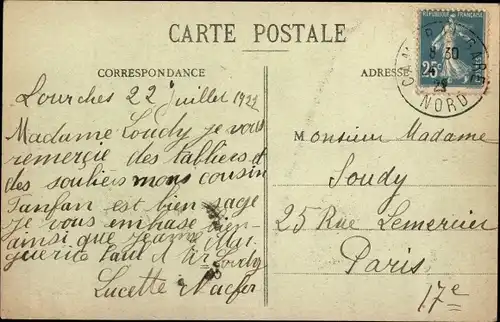 CARTE POSTALE
CORRESPONDANCE
Lourches 22 Juillet 1922
Madame Soudy je vous
remercie des tabliers et
des souliers mons cousin
Fanfan est bien sage
je vous embase bien
ainsi que Jeanne Mar
guerite Paul Soudy
Lucette
ADRESSE
REPUBLIQUE FRANÇAISE
25c
GARE
8 30
22
NORD
Monsieur Madame
Soudy
25 Rue Lemercier
Paris
17e